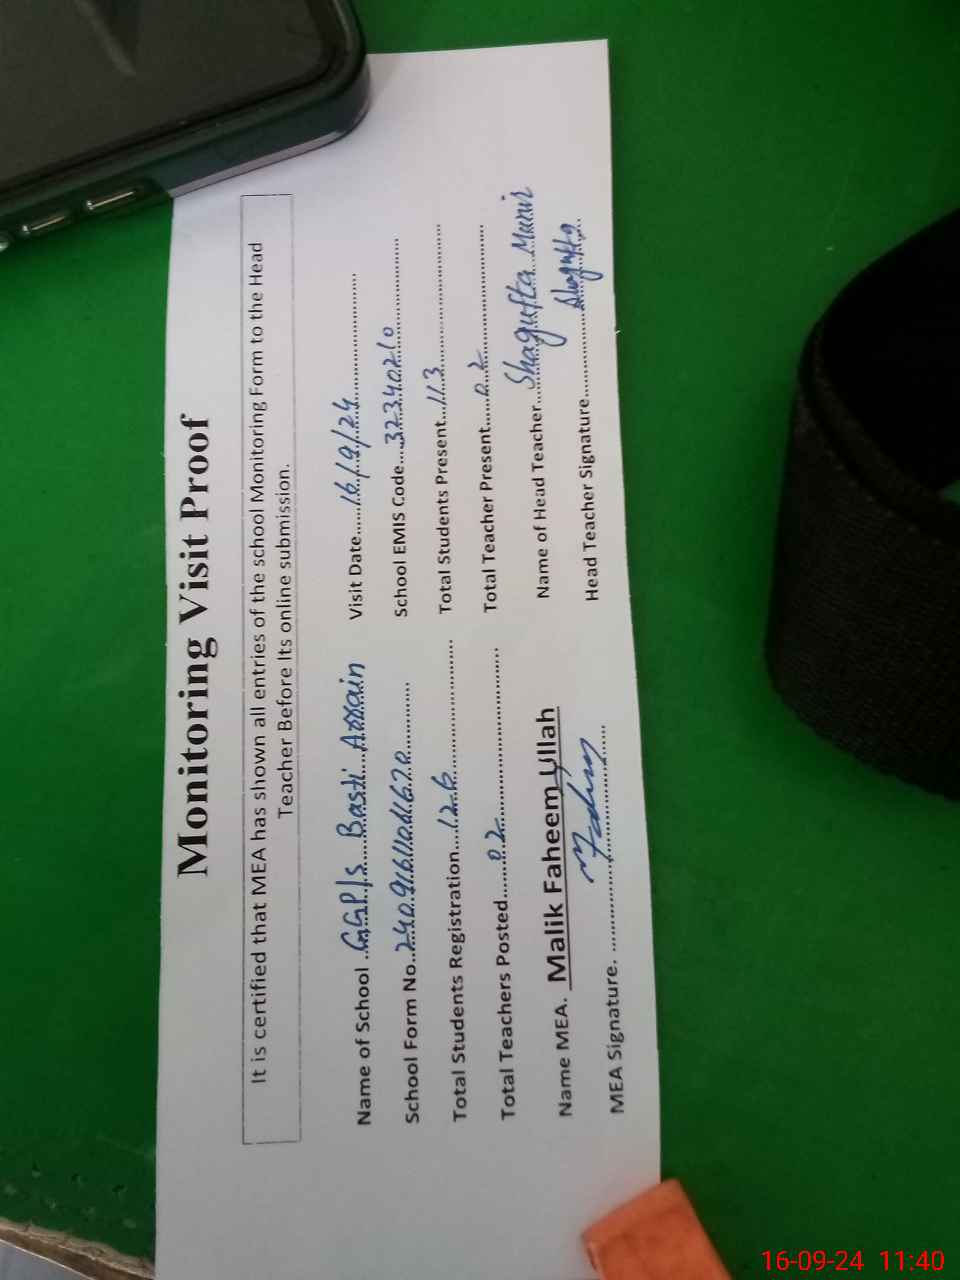 Monitoring Visit Proof
It is certified that MEA has shown all entries of the school Monitoring Form to the Head
Teacher Before Its online submission.
Name of School ..GGP/S Basti Arrain Visit Date......16/9/24
School Form No..24091611041620 School EMIS Code....32340210
Total Students Registration....126 Total Students Present...113
Total Teachers Posted.......02 Total Teacher Present.....02
Name MEA. Malik Faheem Ullah Name of Head Teacher...Shagufta Munir
MEA Signature. .......... Head Teacher Signature..........Shagufta
16-09-24 11:40